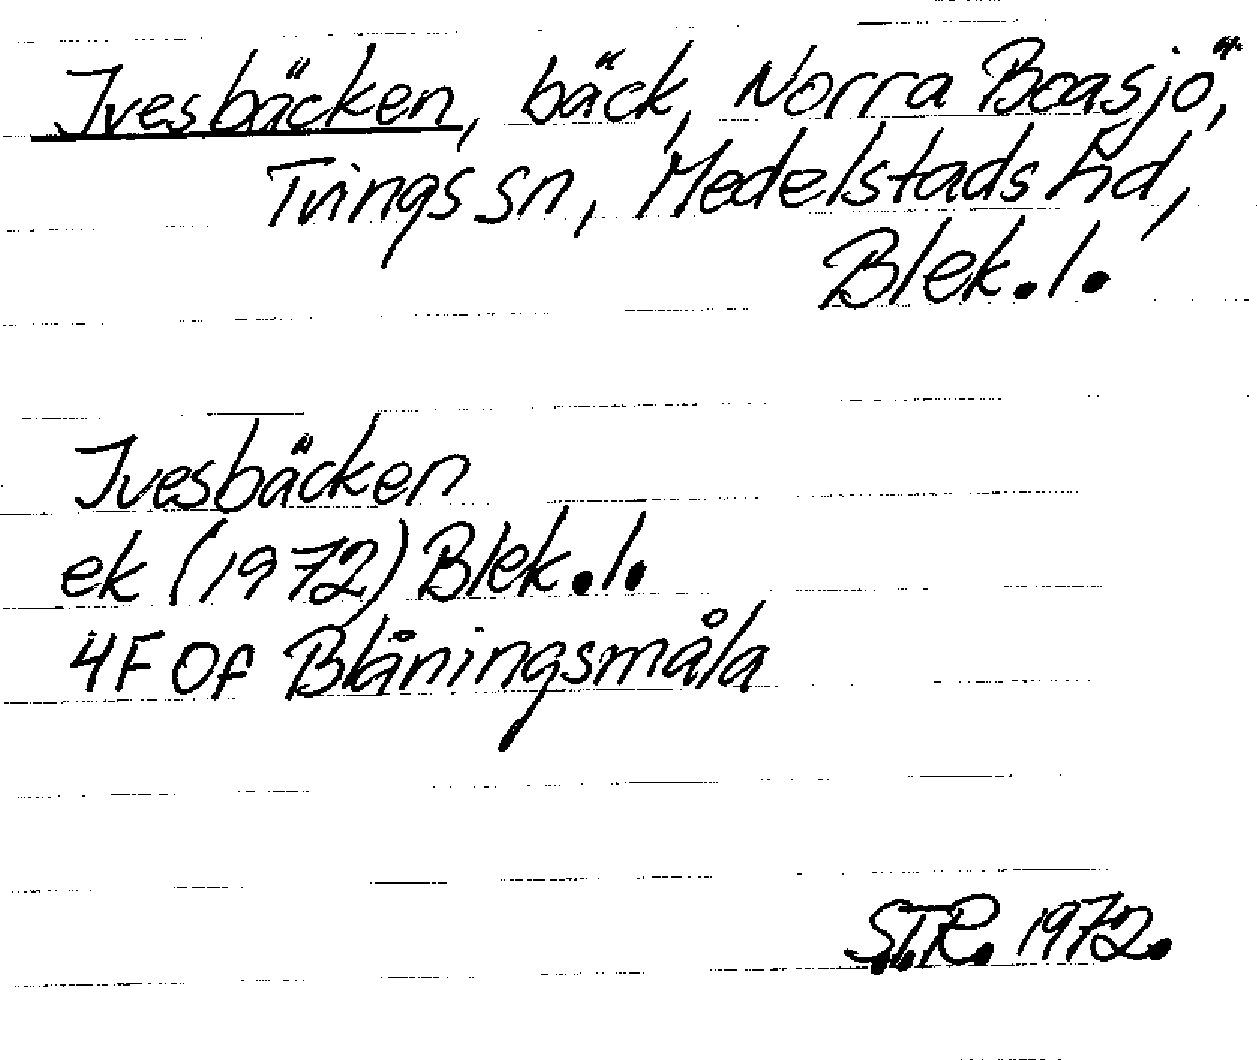 Ivesbäcken, bäck, Norra Boasjö,
Tvings sn, Medelstads hd,
Blek. l.
Ivesbäcken
ek (1972) Blek. l.
4F 0f Blåningsmåla
S.T.R. 1972.